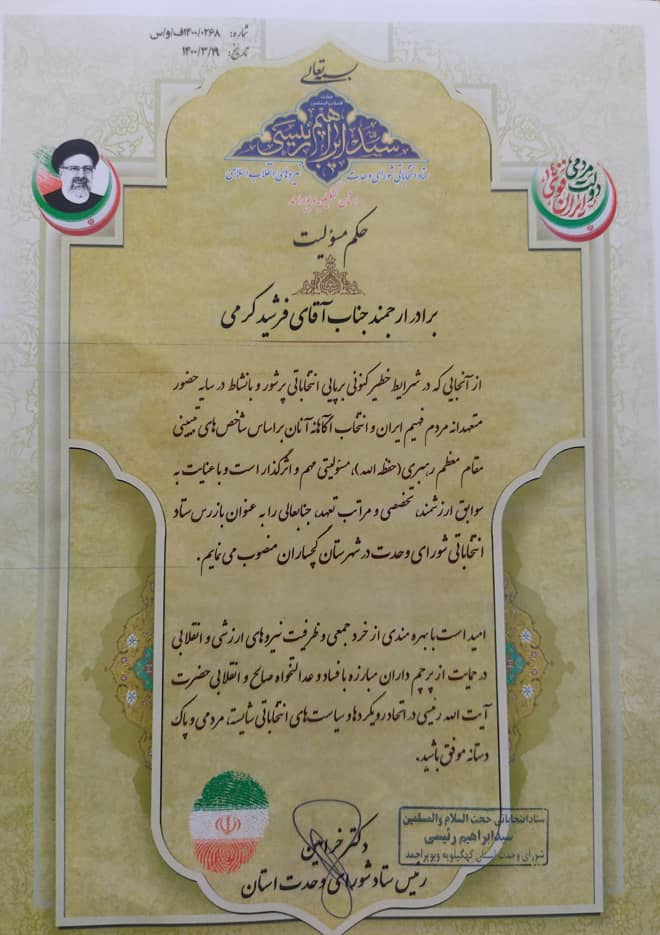 شماره: ۱۴۰۰/۰۲۶۸/ف/و/س
تاریخ: ۱۴۰۰/۳/۱۹
بسمه تعالی
حجت الاسلام والمسلمین
سید ابراهیم رئیسی
ستاد انتخاباتی شورای وحدت نیروهای انقلاب اسلامی
استان کهگیلویه و بویراحمد
دولت مردمی
ایران قوی
حکم مسؤلیت
برادر ارجمند جناب آقای فرشید کرمی
از آنجایی که در شرایط خطیر کنونی برپایی انتخاباتی پرشور و بانشاط در سایه حضور
متعهدانه مردم فهیم ایران و انتخاب آگاهانه آنان براساس شاخص های تبیینی
مقام معظم رهبری (حفظه الله)، مسؤلیتی مهم و اثرگذار است و با عنایت به
سوابق ارزشمند، تخصصی و مراتب تعهد، جنابعالی را به عنوان بازرس ستاد
انتخاباتی شورای وحدت در شهرستان گچساران منصوب می نمایم.
امید است با بهره مندی از خرد جمعی و ظرفیت نیروهای ارزشی و انقلابی
در حمایت از پرچم داران مبارزه با فساد و عدالتخواه صالح و انقلابی حضرت
آیت الله رئیسی در اتحاد رویکردها و سیاست های انتخاباتی شایسته، مردمی و پاک
دستانه موفق باشید.
دکتر خرامین
رئیس ستاد شورای وحدت استان
ستاد انتخاباتی حجت السلام والمسلمین
سید ابراهیم رئیسی
شورای وحدت استان کهگیلویه وبویراحمد